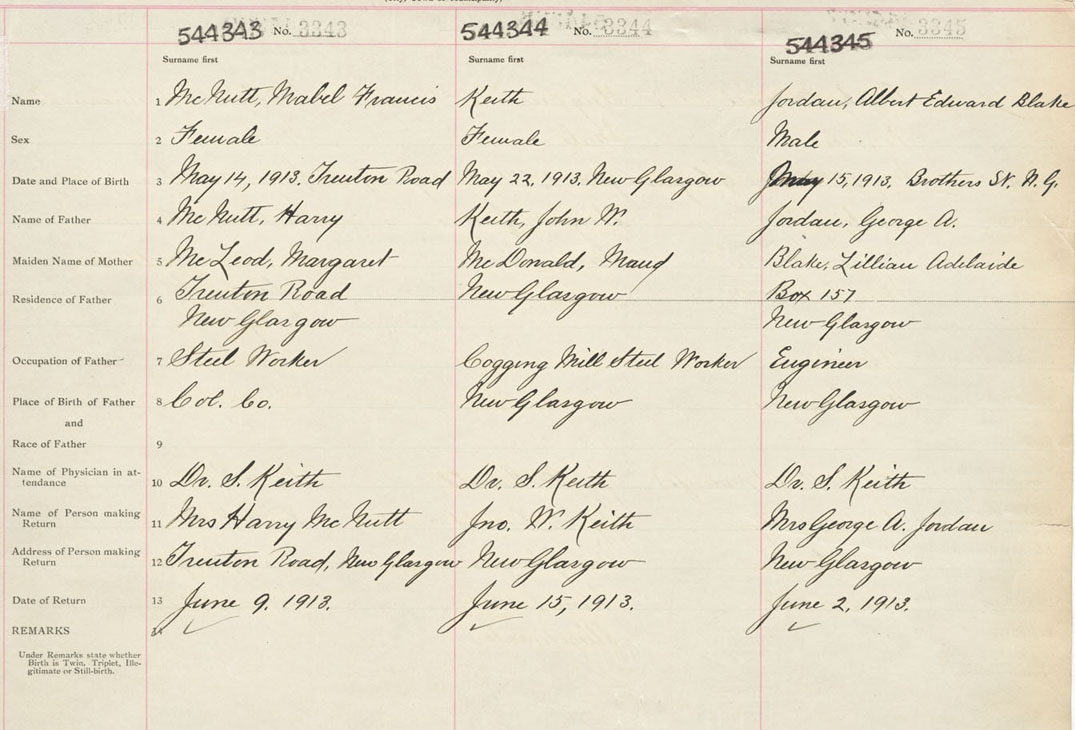 544343 No. 3343 544344 No. 3344 544345 No. 3345
Surname first Surname first Surname first
Name 1 McNutt, Mabel Francis Keith Jordan, Albert Edward Blake
Sex 2 Female Female Male
Date and Place of Birth 3 May 14, 1913. Trenton Road May 22, 1913. New Glasgow May 15, 1913. Brothers St. N.G.
Name of Father 4 McNutt, Harry Keith, John W. Jordan, George A.
Maiden Name of Mother 5 McLeod, Margaret McDonald, Maud Blake, Lillian Adelaide
Residence of Father 6 Trenton Road New Glasgow Box 157
New Glasgow New Glasgow
Occupation of Father 7 Steel Worker Cogging Mill Steel Worker Engineer
Place of Birth of Father 8 Col. Co. New Glasgow New Glasgow
and
Race of Father 9
Name of Physician in at-
tendance 10 Dr. S. Keith Dr. S. Keith Dr. S. Keith
Name of Person making
Return 11 Mrs Harry McNutt Jno. W. Keith Mrs George A. Jordan
Address of Person making
Return 12 Trenton Road, New Glasgow New Glasgow New Glasgow
Date of Return 13 June 9, 1913. June 15, 1913. June 2, 1913.
REMARKS 14
Under Remarks state whether
Birth is Twin, Triplet, Ille-
gitimate or Still-birth.